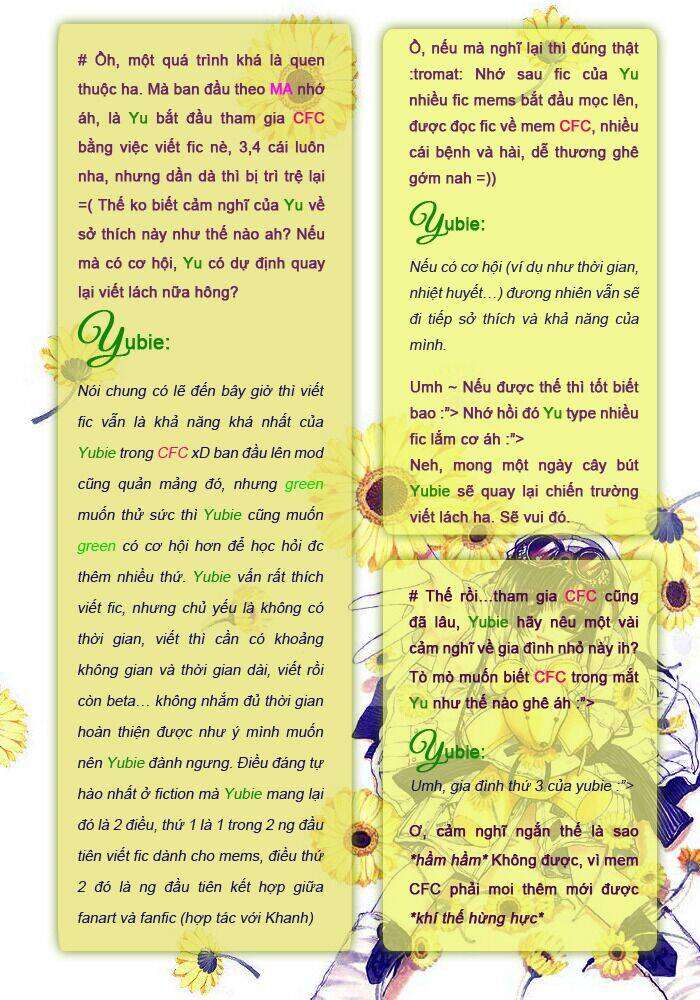 # Ồh, một quá trình khá là quen
thuộc ha. Mà ban đầu theo MA nhớ
áh, là Yu bắt đầu tham gia CFC
bằng việc viết fic nè, 3,4 cái luôn
nha, nhưng dần dà thì bị trì trệ lại
=( Thế ko biết cảm nghĩ của Yu về
sở thích này như thế nào ah? Nếu
mà có cơ hội, Yu có dự định quay
lại viết lách nữa hông?
Yubie:
Nói chung có lẽ đến bây giờ thì viết
fic vẫn là khả năng khá nhất của
Yubie trong CFC xD ban đầu lên mod
cũng quản mảng đó, nhưng green
muốn thử sức thì Yubie cũng muốn
green có cơ hội hơn để học hỏi đc
thêm nhiều thứ. Yubie vấn rất thích
viết fic, nhưng chủ yếu là không có
thời gian, viết thì cần có khoảng
không gian và thời gian dài, viết rồi
còn beta… không nhắm đủ thời gian
hoàn thiện được như ý mình muốn
nên Yubie đành ngưng. Điều đáng tự
hào nhất ở fiction mà Yubie mang lại
đó là 2 điều, thứ 1 là 1 trong 2 ng đầu
tiên viết fic dành cho mems, điều thứ
2 đó là ng đầu tiên kết hợp giữa
fanart và fanfic (hợp tác với Khanh)
Ồ, nếu mà nghĩ lại thì đúng thật
:tromat: Nhớ sau fic của Yu
nhiều fic mems bắt đầu mọc lên,
được đọc fic về mem CFC, nhiều
cái bệnh và hài, dễ thương ghê
gớm nah =))
Yubie:
Nếu có cơ hội (ví dụ như thời gian,
nhiệt huyết…) đương nhiên vẫn sẽ
đi tiếp sở thích và khả năng của
mình.
Umh ~ Nếu được thế thì tốt biết
bao :”> Nhớ hồi đó Yu type nhiều
fic lắm cơ áh :”>
Neh, mong một ngày cây bút
Yubie sẽ quay lại chiến trường
viết lách ha. Sẽ vui đó.
# Thế rồi…tham gia CFC cũng
đã lâu, Yubie hãy nêu một vài
cảm nghĩ về gia đình nhỏ này ih?
Tò mò muốn biết CFC trong mắt
Yu như thế nào ghê áh :”>
Yubie:
Umh, gia đình thứ 3 của yubie :”>
Ơ, cảm nghĩ ngắn thế là sao
*hầm hầm* Không được, vì mem
CFC phải moi thêm mới được
*khí thế hừng hực*